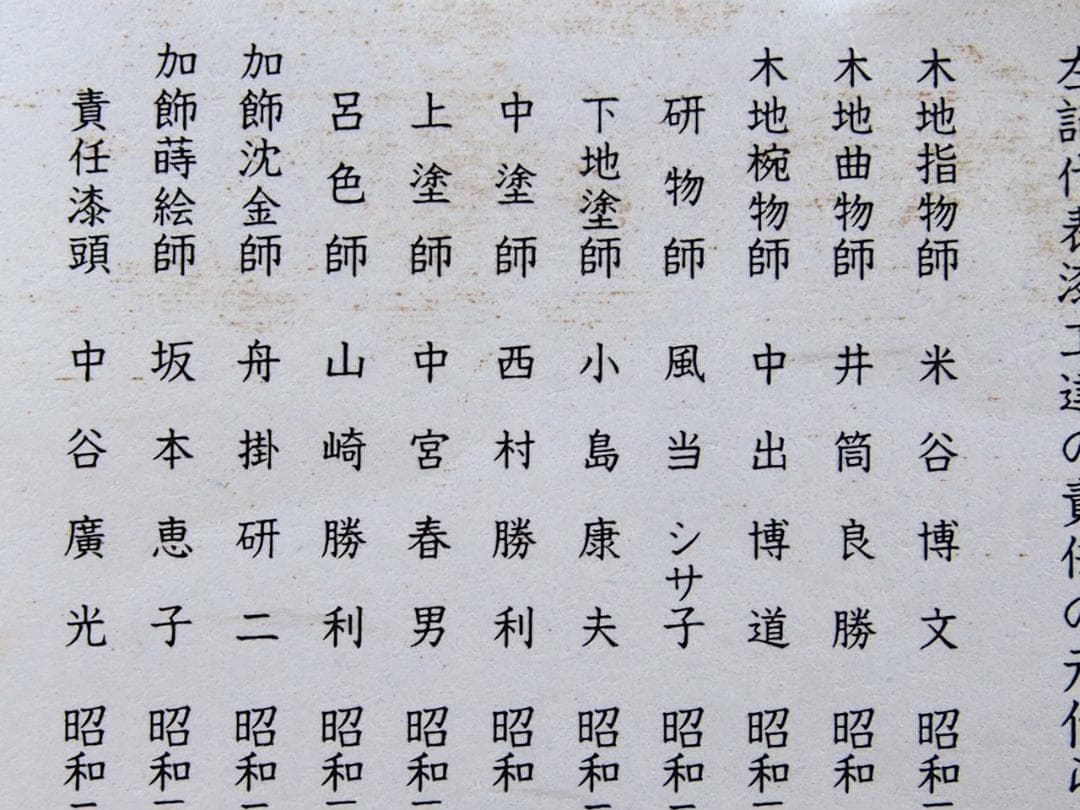 左記代表漆工達の責任の元作ら
木地指物師 米谷博文 昭和
木地曲物師 井筒良勝 昭和
木地椀物師 中出博道 昭和
研物師 風当シサ子 昭和
下地塗師 小島康夫 昭和
中塗師 西村勝利 昭和
上塗師 中宮春男 昭和
呂色師 山崎勝利 昭和
加飾沈金師 舟掛研二 昭和
加飾蒔絵師 坂本恵子 昭和
責任漆頭 中谷廣光 昭和